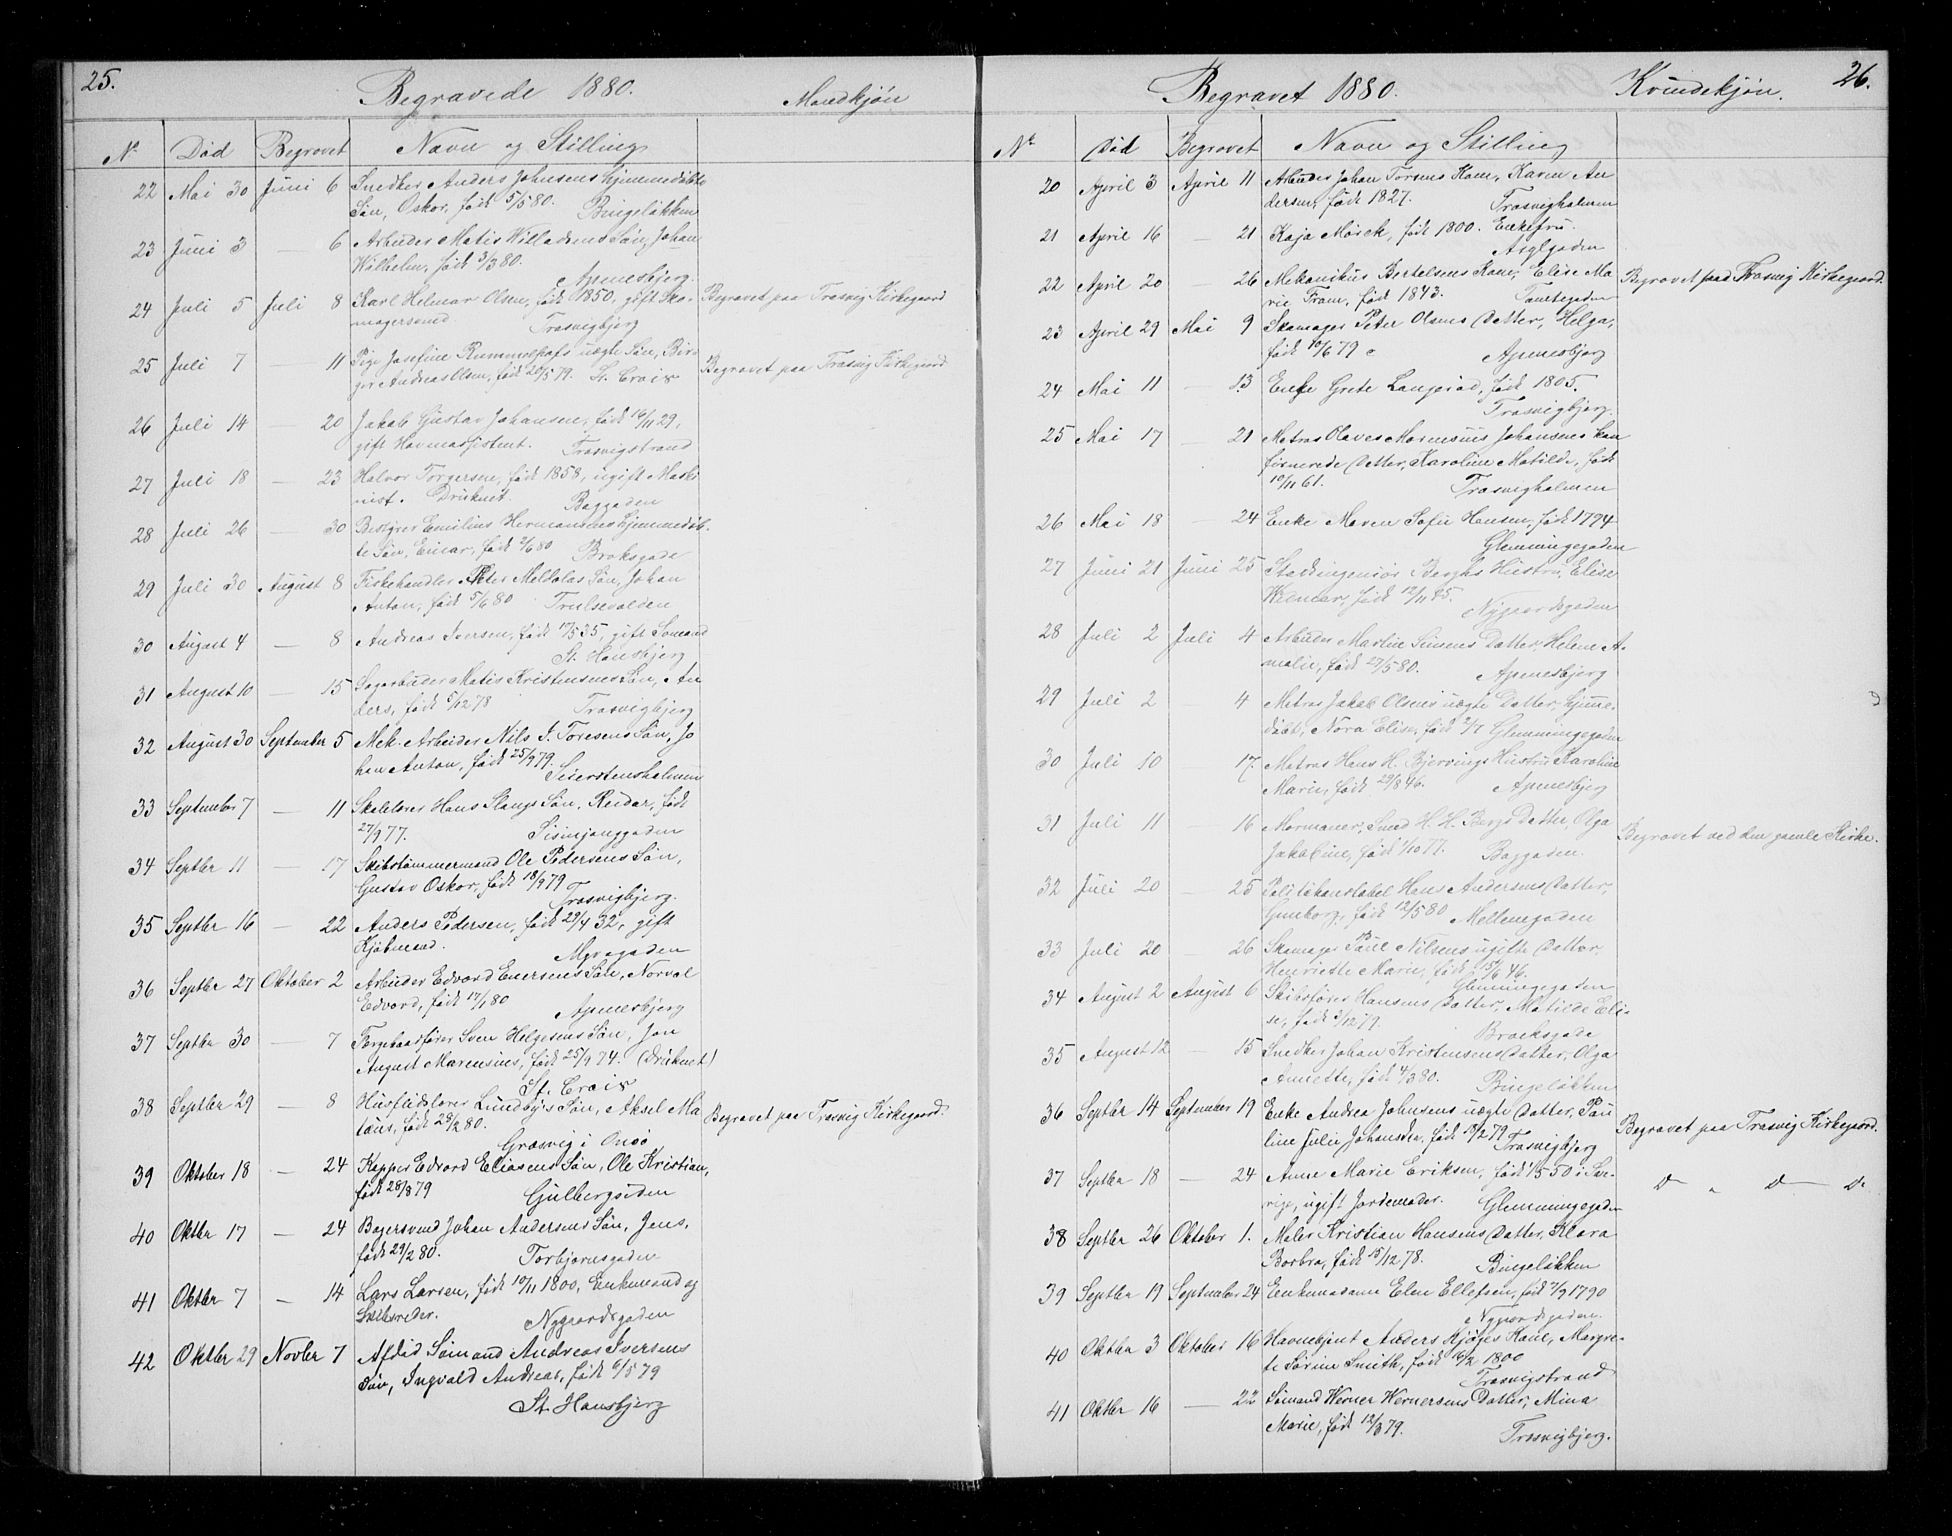 25.
Begravede 1880.
Mandkjön
N.
Död
Begravet
Navn og Stilling
22 Mai 30 Juni 6 Snedker Anders Johnsens hjemmedöbte
Sön, Oskar, födt 5/5 80. Bingeløkken
23 Juni 3 — 6 Arbeider Matis Willadsens Sön, Johan
Wilhelm, födt 3/3 80.
Apenesbjerg
24 Juli 5 Juli 8 Karl Helmar Olsen, födt 1850, gift Sko- Begravet paa Trosvig Kirkegaard
magersvend Trosvigbjerg
25 Juli 7 — 11 Pige Josefine uægte Sön, Bir- Begravet paa Trosvig Kirkegaard
ger Andreas Olsen, födt 20/5 79. St. Croix
26 Juli 14 — 20 Jakob Gustav Johansen, födt 16/11 29,
gift Havnassistent. Trosvigstrand
27 Juli 18 — 23 Halvor Torgersen, födt 1858, ugift Maski
nist. Druknet. Baggaden
28 Juli 26 — 30 Emilius Hermansens hjemmedöb-
te Sön, Einar, födt /6 80 Broksgade
29 Juli 30 August 8 Fiskehandler Peter Sön, Johan
Anton, födt 5/6 80
30 August 4 — 8 Andreas Iversen, födt 17/5 35, gift Sömand
St. Hansbjerg
31 August 10 — 15 Sagarbeider Matis Kristensens Sön, An
ders, födt 5/12 78 Trosvigbjerg
32 August 30 September 5 Mek. Arbeider Nils J. Toresens Sön, Jo
han Anton, födt 25/9 79.
33 September 7 — 11 Skolelærer Hans Slangs Sön, Reidar, födt
27/9 77.
34 Septbr 11 — 17 Skibstömmermand Ole Pedersens Sön,
Gustav Oskar, födt 18/9 79
Trosvigbjerg.
35 Septbr 16 — 22 Anders Pedersen, födt 29/4 32, gift
Kjöbmand.
36 Septbr 27 Oktober 2 Arbeider Edvard Enersens Sön, Norval
Edvard, födt 17/1 80
Apenesbjerg
37 Septbr 30 — 7 Sven Helgesens Sön, Jon
August Marensius, födt 25/9 74. (Druknet)
St. Croix
38 Septbr 29 — 8 Husflidslærer Lundbys Sön, Aksel Begravet paa Trosvig Kirkegaard.
födt 28/2 80.
Græsvig i Onsö
39 Oktober 18 — 24 Kapper Edvard Eliasens Sön, Ole Kristian,
födt 28/8 79 Gulbergsiden
40 Oktbr 17 — 24 Bagersvend Johan Andersens Sön, Jens,
födt 29/2 80. Torbjørnsgaden
41 Oktbr 7 — 14 Lars Larsen, födt 10/11 1800, Enkemand og
Skibsreder. Nygaardsgaden
42 Oktbr 29 Novbr 7 Afdød Sömand Andreas Iversens
Sön, Ingvald Andreas, födt 6/5 79
St. Hansbjerg
26.
Begravet 1880.
Kvindekjön.
Nr.
Död
Begravet
Navn og Stilling
20 April 3 April 11 Arbeider Johan Torsens Kone, Karen An
dersen, födt 1827. Trosvigholmen
21 April 16 — 21 Kaja Mörch, födt 1800. Enkefru.
Asylgaden
22 April 20 — 26 Mekanikus Bertelsens Kone, Elise Ma Begravet paa Trosvig Kirkegaard.
rie Fram, födt 1843. Tomtegaden
23 April 29 Mai 9 Skomager Peter Olsens Datter, Helga,
födt 10/6 79 Apenesbjerg
24 Mai 11 — 13 Enke Grete Langerød, födt 1805.
Trosvigbjerg.
25 Mai 17 — 21 Matros Olaves Marensius Johansens kon
firmerede Datter, Karoline Matilde, födt
10/11 61. Trosvigholmen
26 Mai 18 — 24 Enke Maren Sofie Hansen, födt 1794
Glemmingegaden
27 Juni 21 Juni 25 Stadsingeniör Berghs Hustru, Elise
födt 12/11 45. Nygaardsgaden
28 Juli 2 Juli 4 Arbeider Martin Datter, Helene A-
malie, födt 27/5 80. Apenesbjerg
29 Juli 2 — 4 Matros Jakob Olsens uægte Datter, hjem-
döbt, Nora Elise, födt 2/7 Glemmingegaden
30 Juli 10 — 17. Matros Hans H. Bjervings Hustru Karoline
Marie, födt 29/8 46. Apenesbjerg
31 Juli 11 — 16 Mormoner, Smed H. H. Bergs Datter, Olga Begravet ved den gamle Kirke.
Jakobine, födt 1/10 77. Baggaden.
32 Juli 20 — 25 Politikonstabel Hans Andersens Datter,
Gunborg, födt 12/5 80 Mellemgaden
33 Juli 20 — 26 Skomager Paul Nilsens ugifte Datter,
Henriette Marie, födt 15/6 46.
Glemmingegaden
34 August 2 August 6 Skibsförer Hansens Datter, Matilde Eli-
se, födt 3/12 79. Brocksgade
35 August 12 — 15 Snedker Johan Kristensens Datter, Olga
Annette, födt 4/3 80. Bingeløkken
36 Septbr 14 September 19 Enke Andrea Johnsens uægte Datter, Pau Begravet paa Trosvig Kirkegaard.
line Julie Johansen, födt 13/2 79 Trosvigbjerg
37 Septbr 18 — 24 Anne Marie Eriksen, födt 1/5 50 i Sve- Do " Do Do
rige, ugift Jordemoder. Glemmingegaden
38 Septbr 26 Oktober 1. Maler Kristian Hansens Datter, Klara
Barbra, födt 15/12 78. Bingeløkken
39 Septbr 19 September 24 Enkemadame Elen Ellefsen, födt 7/9 1790
Nygaardsgaden.
40 Oktbr 3 Oktober 16 Havnebtjent Anders Kjøges Kone, Margre-
te Sörine Smith, födt 16/2 1800
Trosvigstrand
41 Oktbr 16 — 22 Sömand Werner Wernersens Datter, Mina
Marie, födt 12/3 79. Trosvigbjerg.